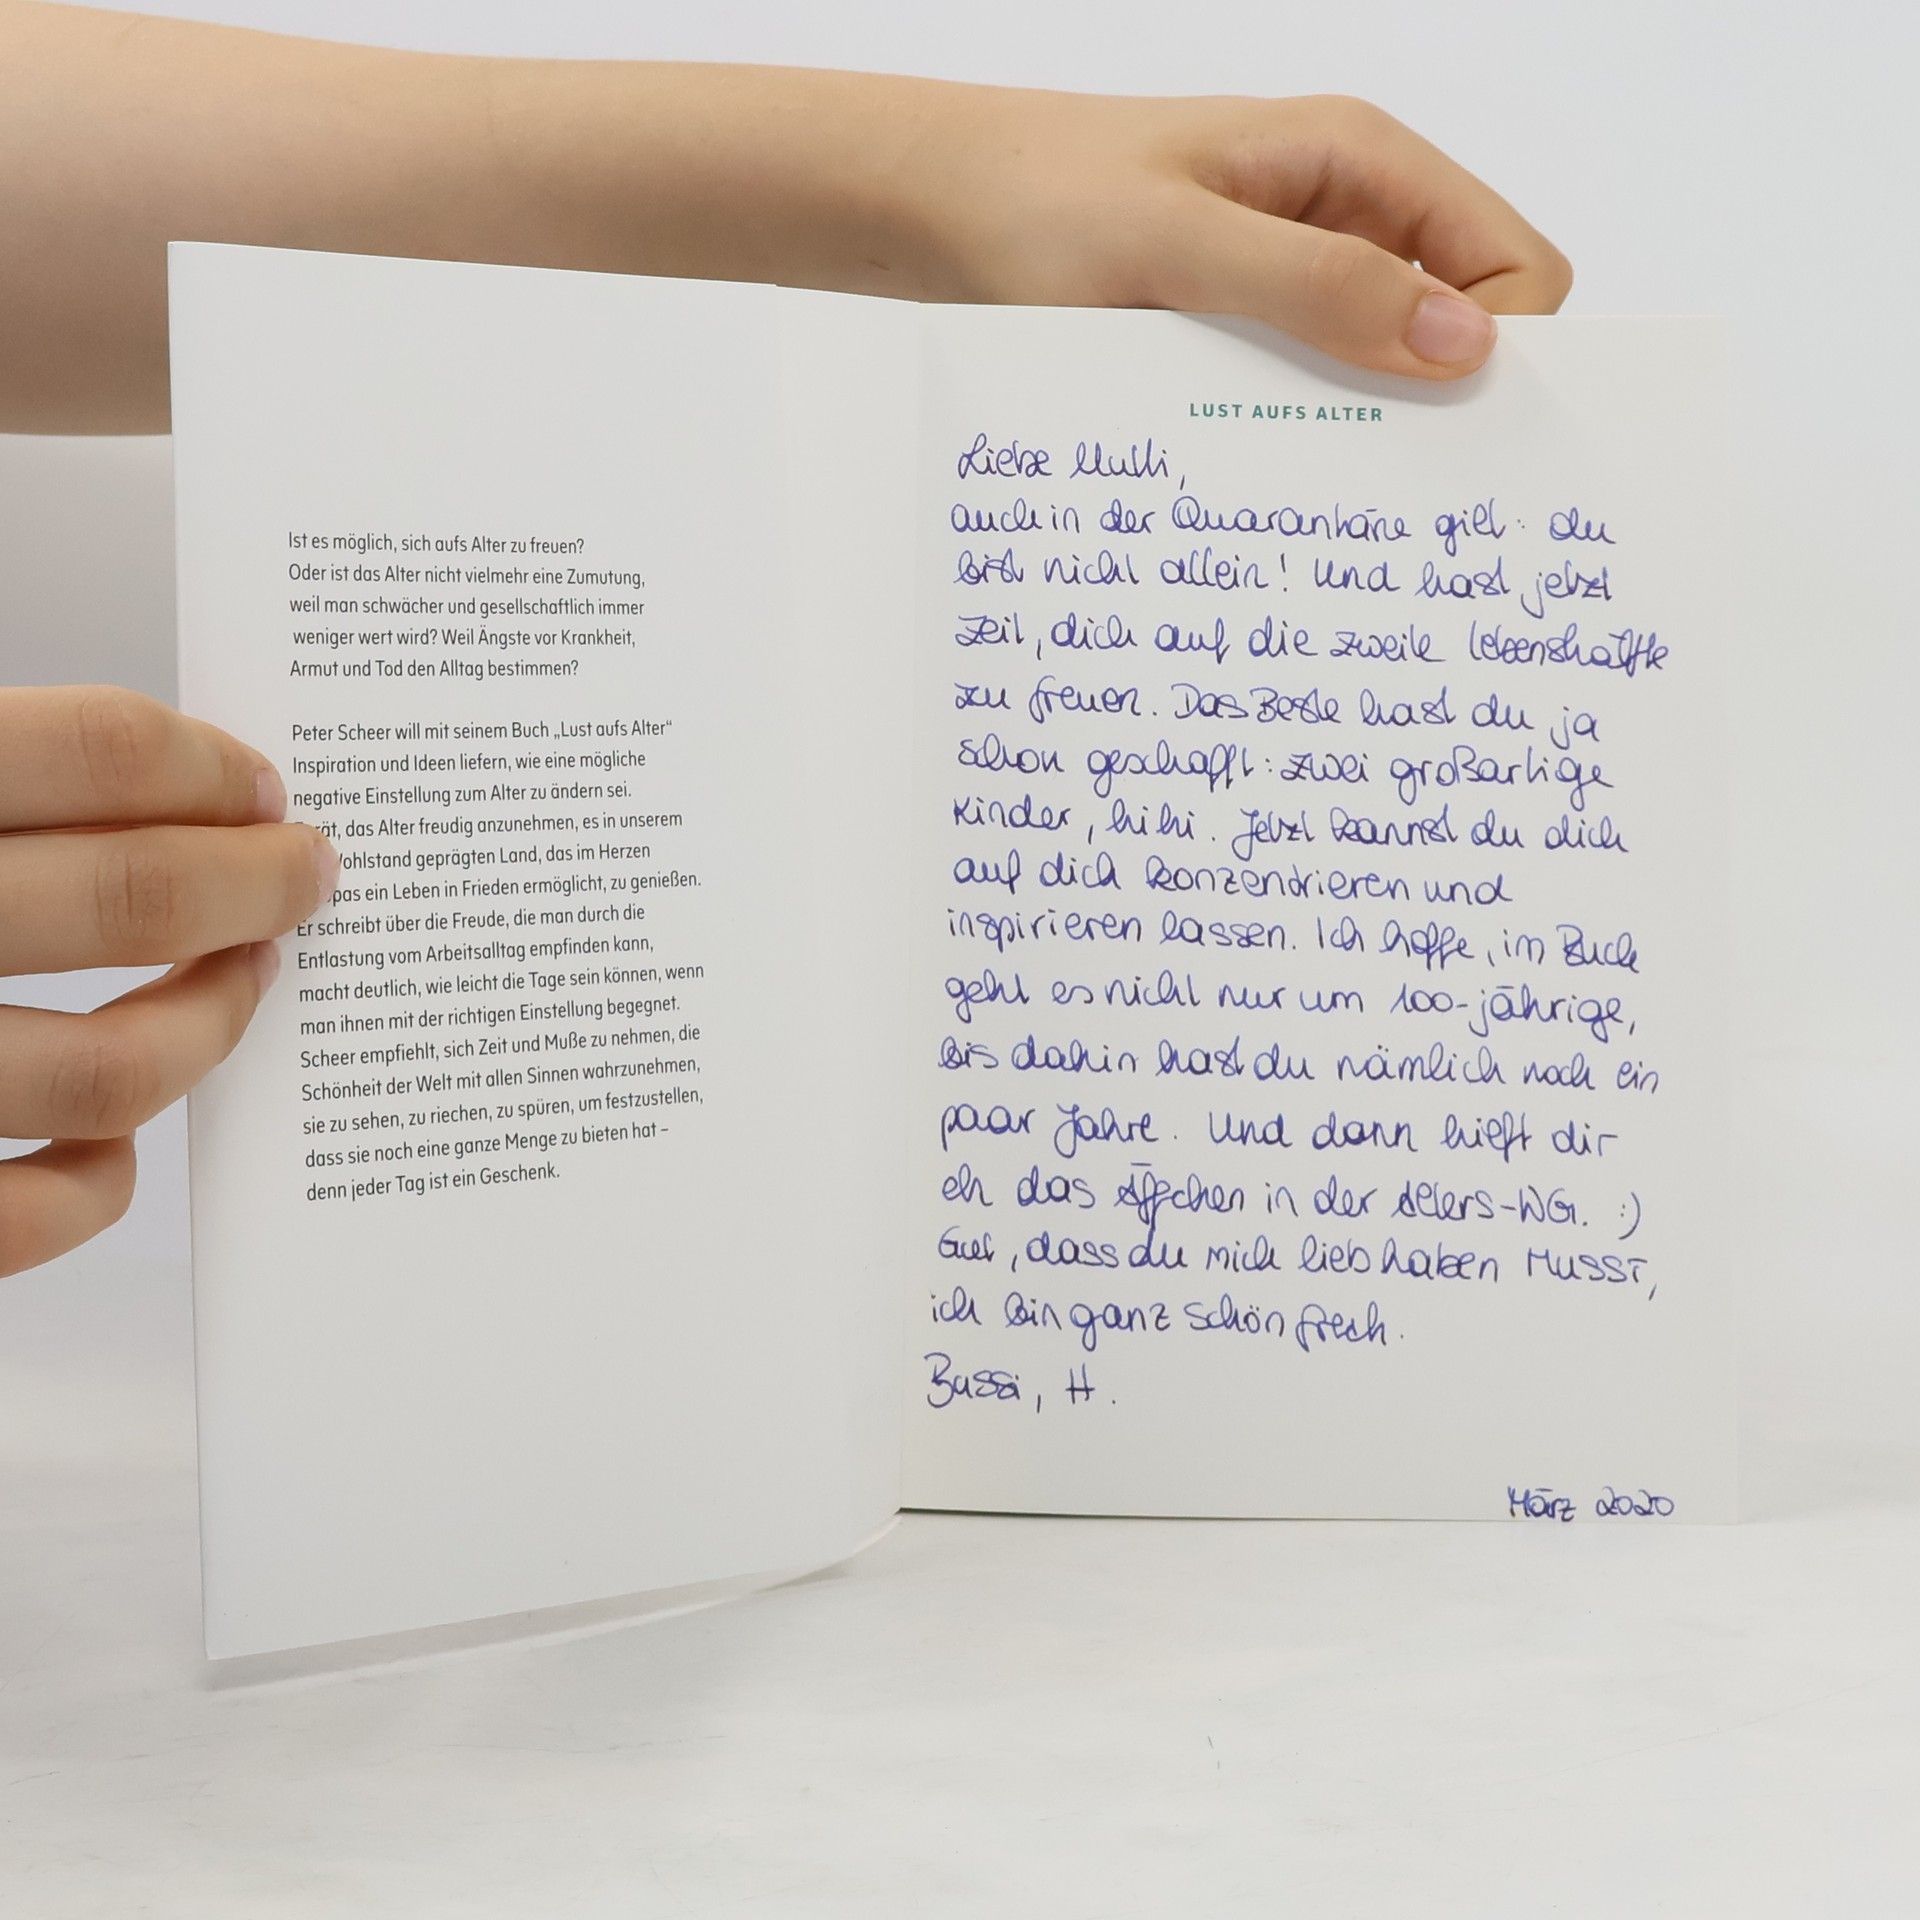 Ist es möglich, sich aufs Alter zu freuen?
Oder ist das Alter nicht vielmehr eine Zumutung,
weil man schwächer und gesellschaftlich immer
weniger wert wird? Weil Ängste vor Krankheit,
Armut und Tod den Alltag bestimmen?
Peter Scheer will mit seinem Buch „Lust aufs Alter“
Inspiration und Ideen liefern, wie eine mögliche
negative Einstellung zum Alter zu ändern sei.
das Alter freudig anzunehmen, es in unserem
geprägten Land, das im Herzen
ein Leben in Frieden ermöglicht, zu genießen.
Er schreibt über die Freude, die man durch die
Entlastung vom Arbeitsalltag empfinden kann,
macht deutlich, wie leicht die Tage sein können, wenn
man ihnen mit der richtigen Einstellung begegnet.
Scheer empfiehlt, sich Zeit und Muße zu nehmen, die
Schönheit der Welt mit allen Sinnen wahrzunehmen,
sie zu sehen, zu riechen, zu spüren, um festzustellen,
dass sie noch eine ganze Menge zu bieten hat –
denn jeder Tag ist ein Geschenk.
LUST AUFS ALTER
Liebe Mutti,
auch in der Quarantäne gilt: du
bist nicht allein! Und hast jetzt
Zeit, dich auf die zweite Lebenshälfte
zu freuen. Das Beste hast du ja
schon geschafft: zwei großartige
Kinder, hihi. Jetzt kannst du dich
auf dich konzentrieren und
inspirieren lassen. Ich hoffe, im Buch
geht es nicht nur um 100-jährige,
bis dahin hast du nämlich noch ein
paar Jahre. Und dann hilft dir
eh das Äffchen in der Alters-WG. :)
Gut, dass du mich lieb haben MUSST,
ich bin ganz schön frech.
Bussi, H.
März 2020